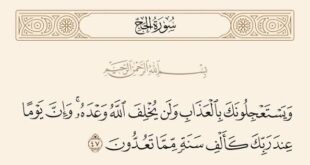 سُورَةُ الحَجِّ
بِسْمِ اللَّهِ الرَّحْمَٰنِ الرَّحِيمِ
وَيَسْتَعْجِلُونَكَ بِالْعَذَابِ وَلَن يُخْلِفَ اللَّهُ وَعْدَهُۥ ۚ وَإِنَّ يَوْمًا
عِندَ رَبِّكَ كَأَلْفِ سَنَةٍ مِّمَّا تَعُدُّونَ ٤٧